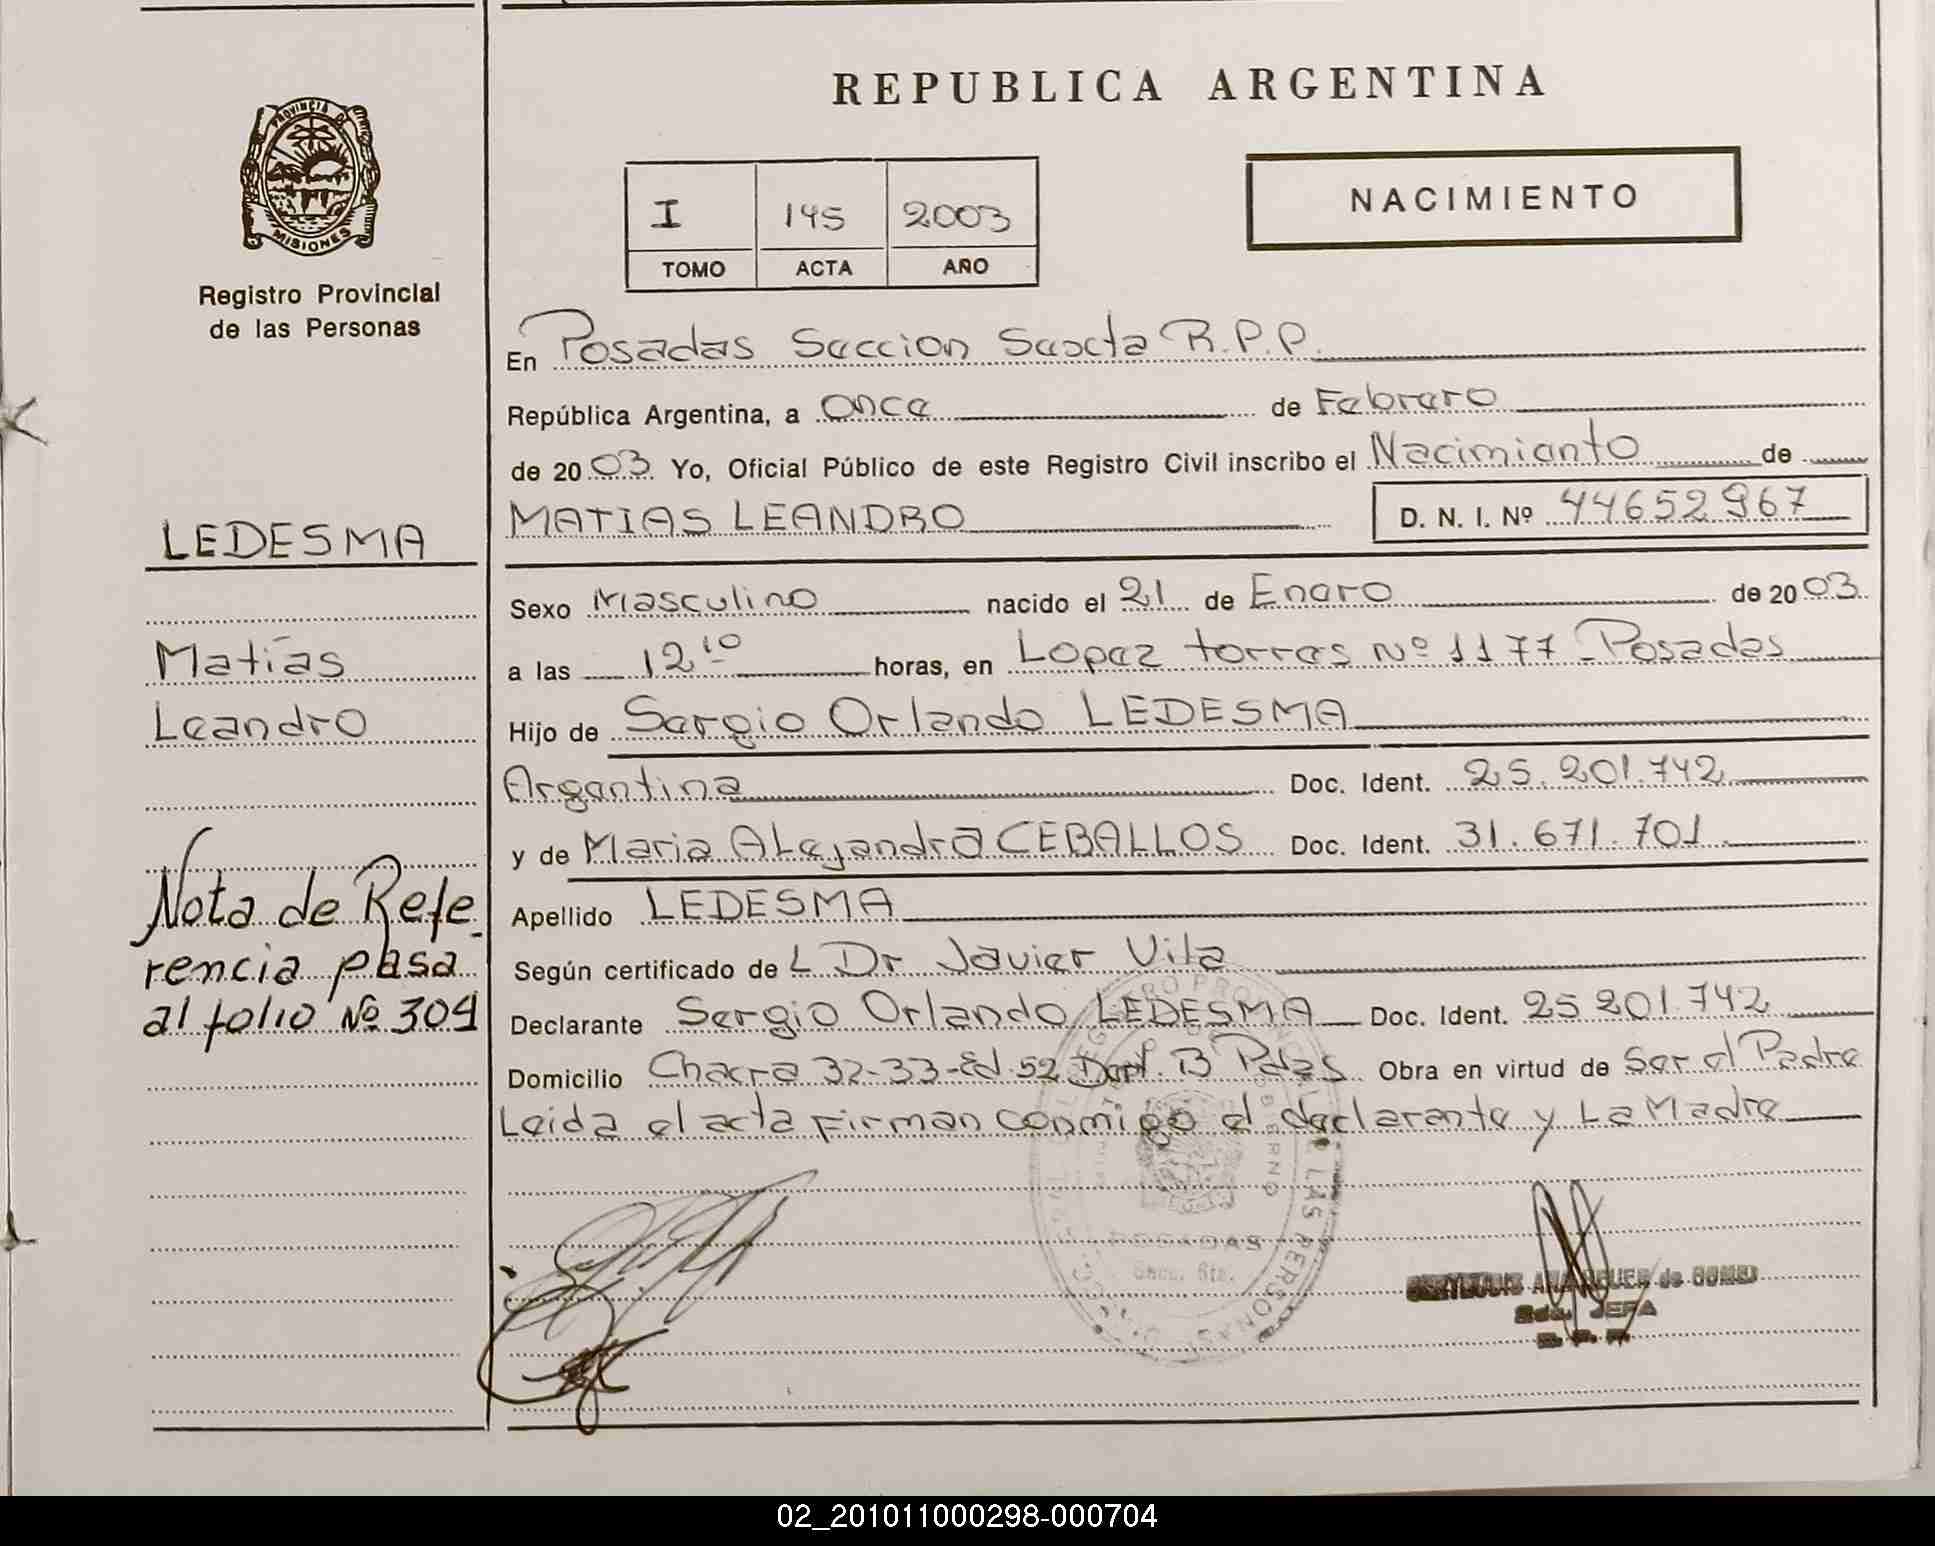 REPUBLICA ARGENTINA
PROVINCIA DE
MISIONES
Registro Provincial
de las Personas
I 145 2003
TOMO ACTA AÑO
NACIMIENTO
En Posadas Seccion Sexta R.P.P.
República Argentina, a once de Febrero
de 2003 Yo, Oficial Público de este Registro Civil inscribo el Nacimiento de
MATIAS LEANDRO D. N. I. Nº 44652967
LEDESMA
Sexo Masculino nacido el 21 de Enero de 2003
Matías
a las 12 10 horas, en Lopez torres Nº 1177 - Posadas
Leandro
Hijo de Sergio Orlando LEDESMA
Argentina Doc. Ident. 25.201.742
y de Maria Alejandra CEBALLOS Doc. Ident. 31.671.701
Nota de Refe-
rencia pasa
al folio Nº 309
Apellido LEDESMA
Según certificado de L Dr Javier Vila
Declarante Sergio Orlando LEDESMA Doc. Ident. 25 201.742
Domicilio Chacra 32-33-Ed.52 Dept. B Pdas Obra en virtud de Ser el Padre
Leida el acta Firman conmigo el declarante y La Madre
POSADAS
Secc. 6ta.
LAS PERSONAS
de GOMEZ
JEFA
02_201011000298-000704